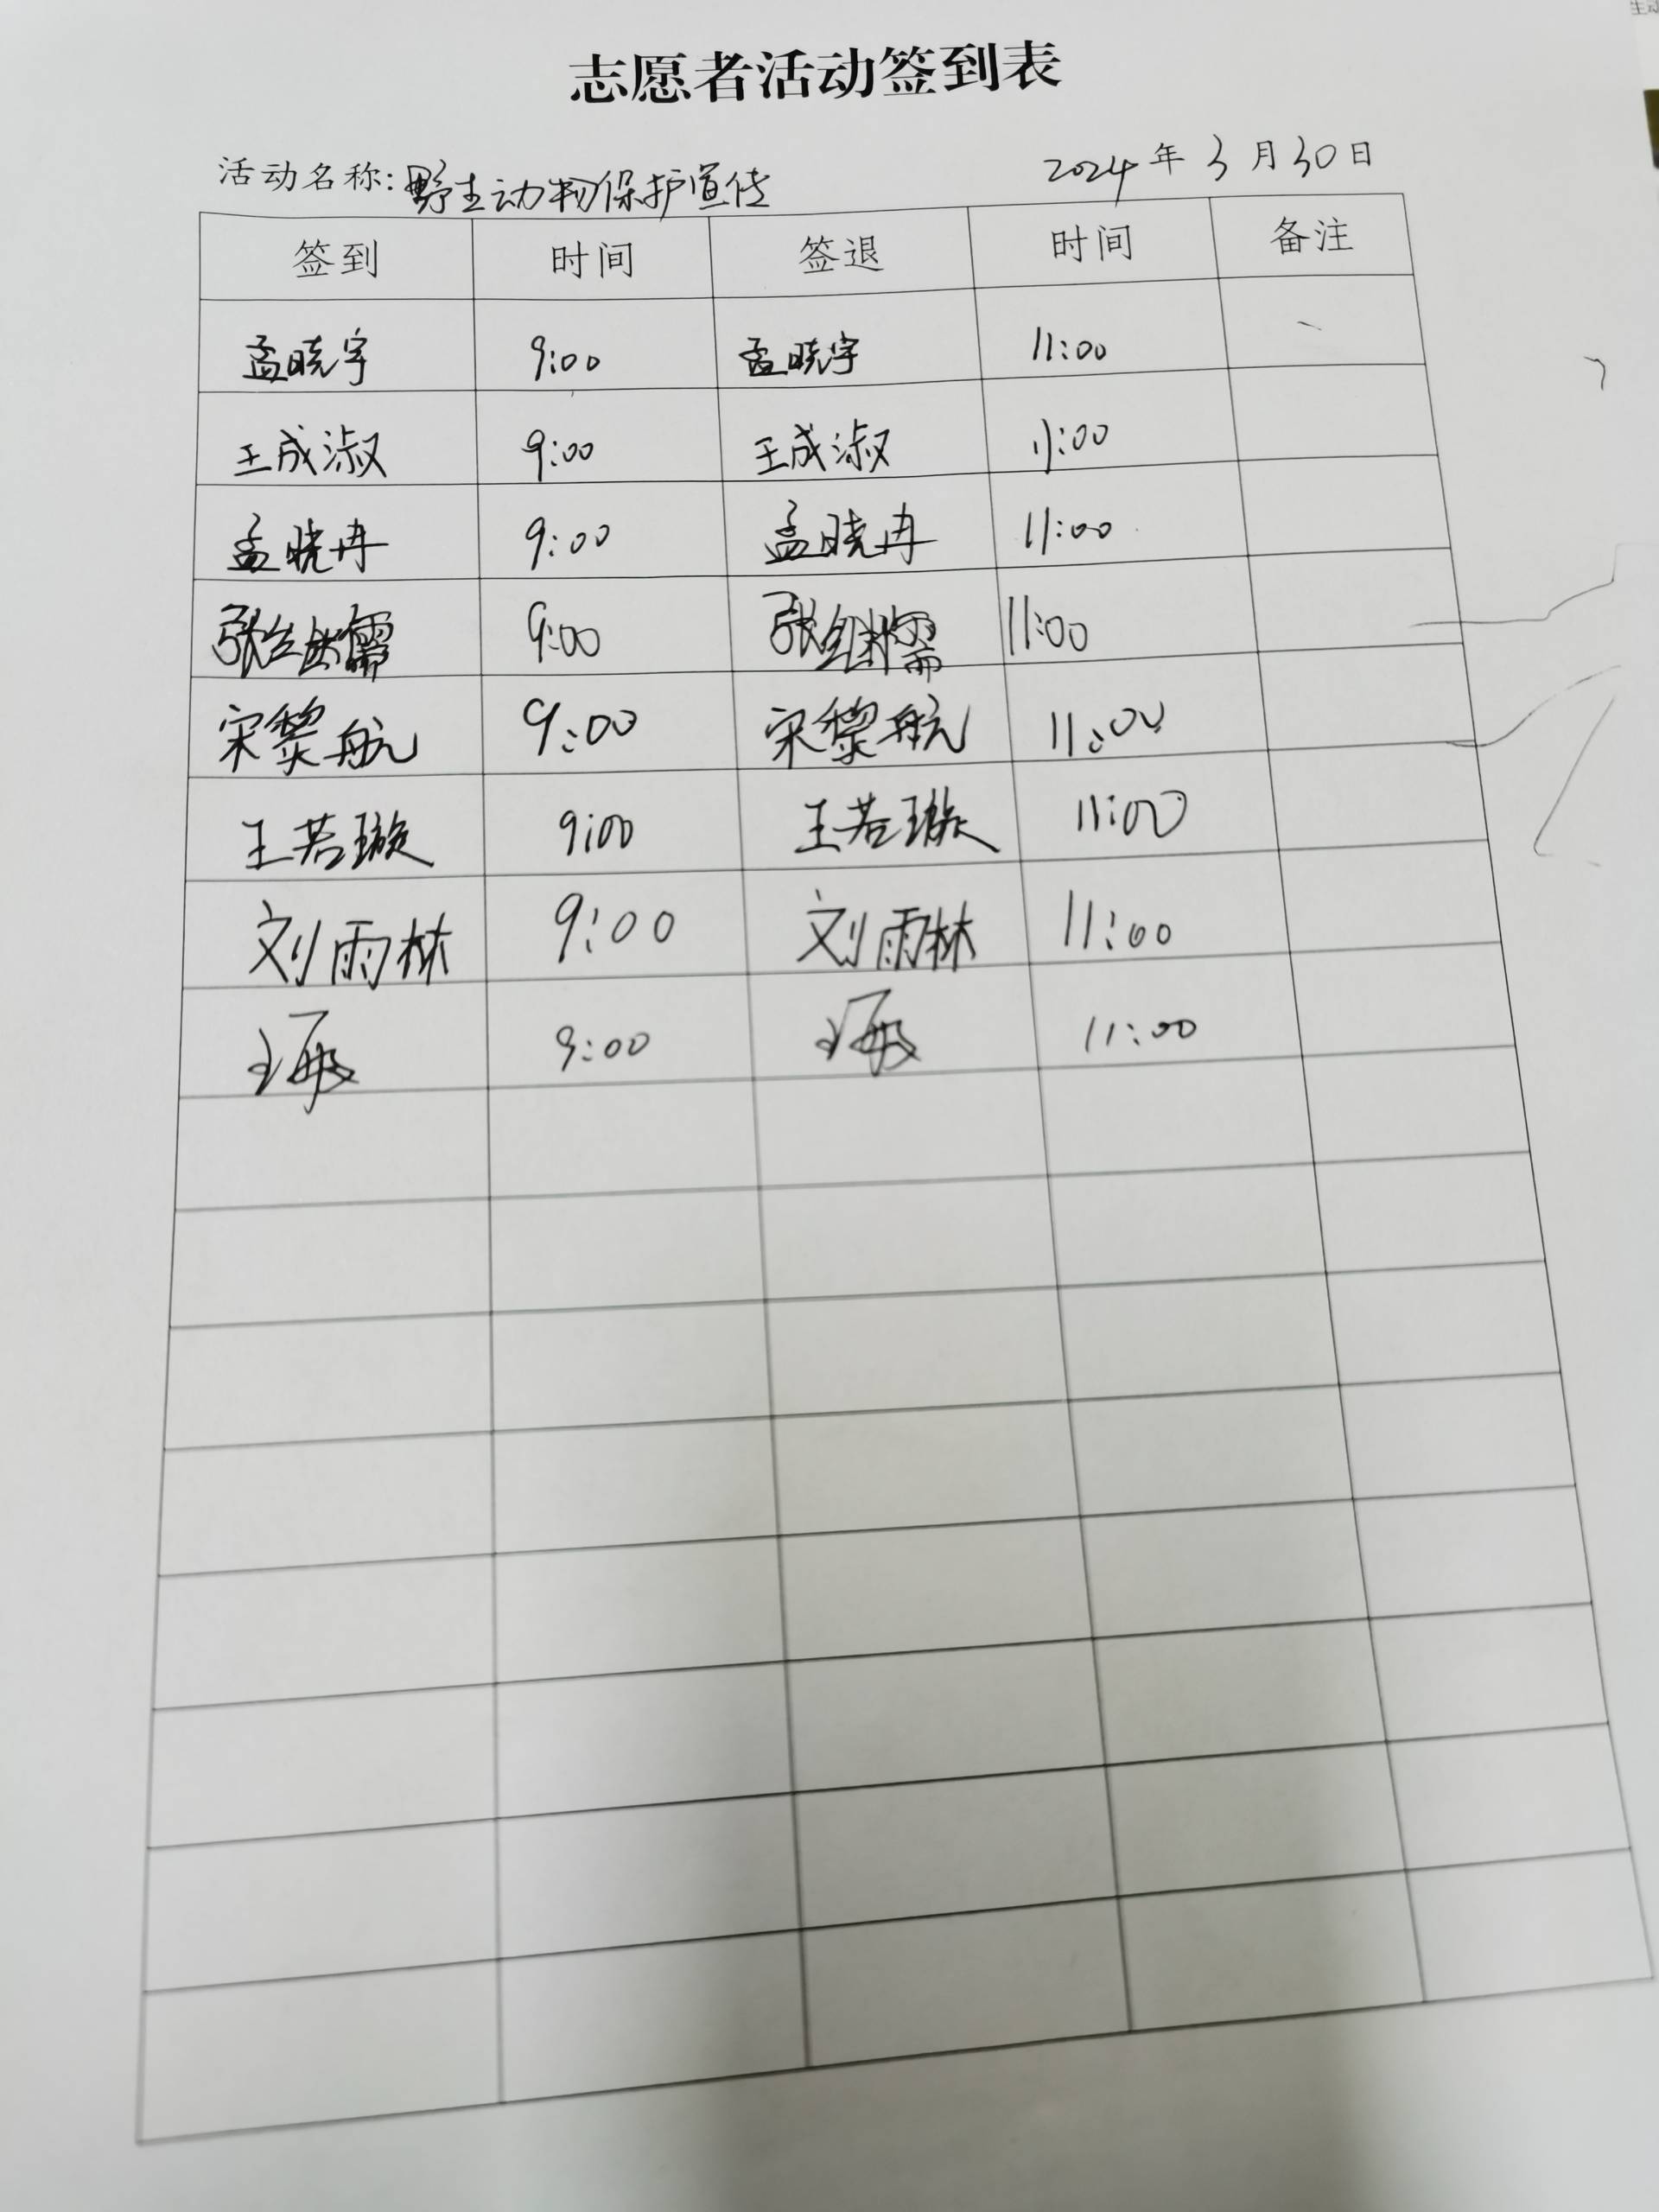 志愿者活动签到表
活动名称:野生动物保护宣传 2024年3月30日
签到 时间 签退 时间 备注
孟晓宇 9:00 孟晓宇 11:00
王成淑 9:00 王成淑 11:00
孟晓冉 9:00 孟晓冉 11:00
张继儒 9:00 张继儒 11:00
宋黎航 9:00 宋黎航 11:00
王若璇 9:00 王若璇 11:00
刘雨林 9:00 刘雨林 11:00
9:00 11:00